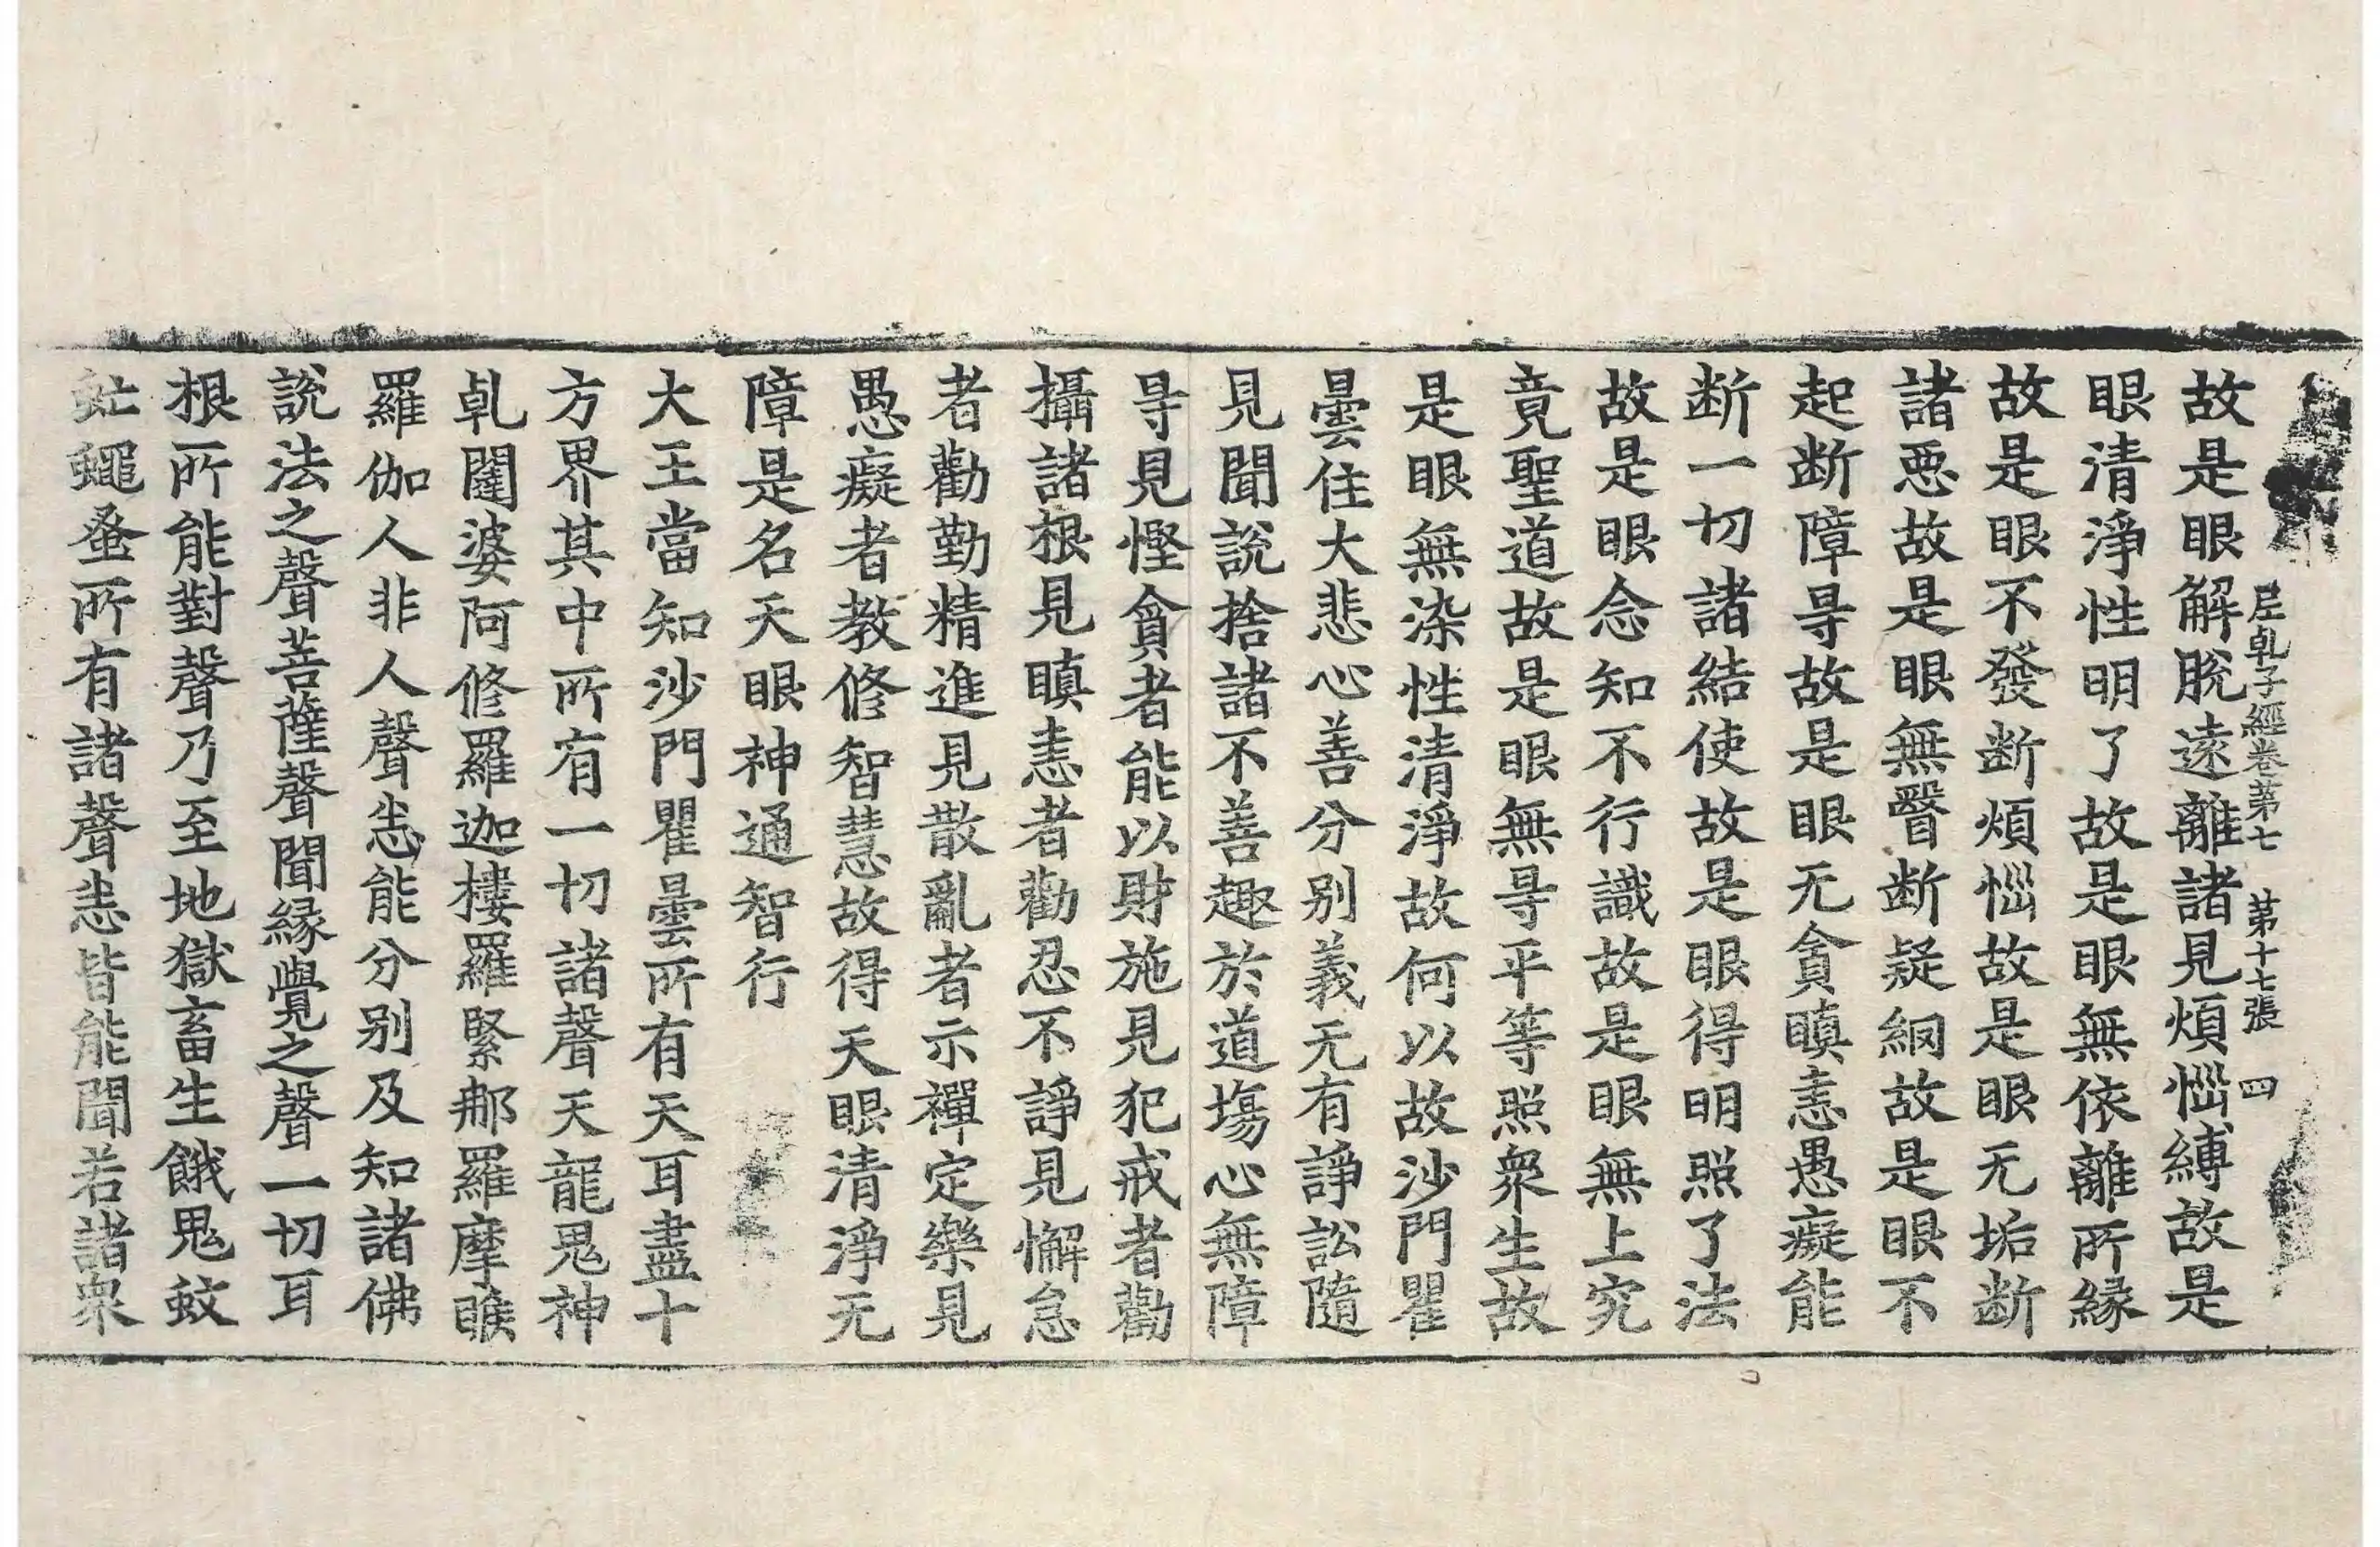 尼乹子經卷第七　第十七張　四
故是眼解脫遠離諸見煩惱縛故是
眼清淨性明了故是眼無依離所緣
故是眼不發断煩惱故是眼无垢断
諸惡故是眼無瞖断疑網故是眼不
起断障㝵故是眼无貪瞋恚愚癡能
断一切諸結使故是眼得明照了法
故是眼念知不行識故是眼無上究
竟聖道故是眼無㝵平等照衆生故
是眼無染性清淨故何以故沙門瞿
曇住大悲心善分别義无有諍訟隨
見聞說捨諸不善趣於道場心無障
㝵見慳貪者能以財施見犯戒者勸
攝諸根見瞋恚者勸忍不諍見懈怠
者勸勤精進見散亂者示禪定樂見
愚癡者教修智慧故得天眼清淨无
障是名天眼神通智行
大王當知沙門瞿曇所有天耳盡十
方界其中所有一切諸聲天龍鬼神
乹闥婆阿修羅迦樓羅緊那羅摩睺
羅伽人非人聲悉能分别及知諸佛
說法之聲菩薩聲聞緣覺之聲一切耳
根所能對聲乃至地獄畜生餓鬼蚊
虻蠅蚤所有諸聲悉皆能聞若諸衆